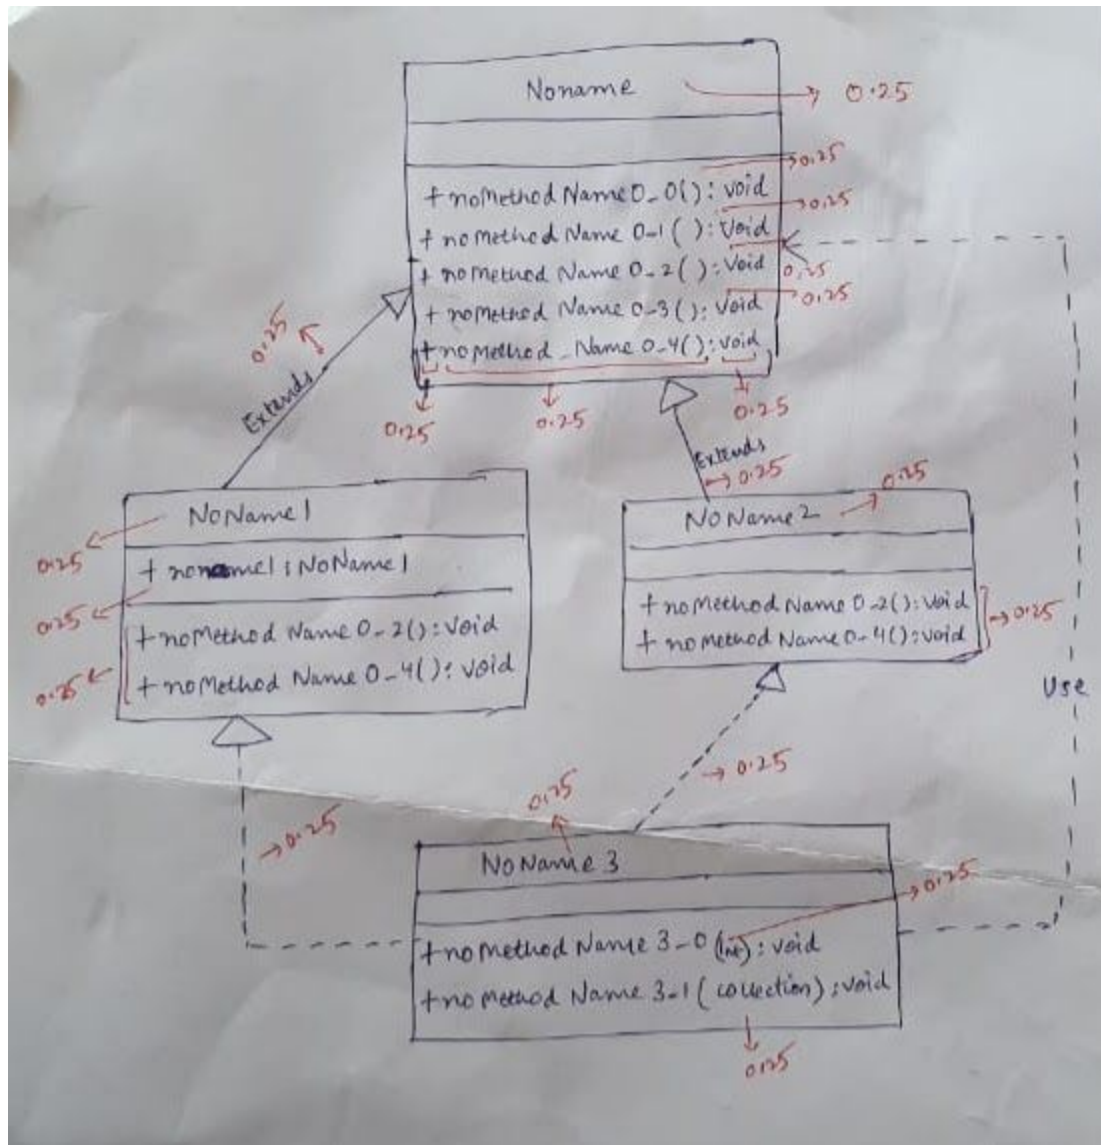 Noname
0.25
0.25
+ noMethod Name 0_0() : void
0.25
+ noMethod Name 0-1 ( ) : Void
+ noMethod Name 0_2( ) : Void
0.25
0.25
+ noMethod Name 0-3() : Void
+ noMethod _ Name 0_4() : void
0.25
Extends
0.25
0.25
0.25
Extends
0.25
NoName 1
0.25
NoName 2
0.25
+ noname1 : NoName 1
0.25
+ noMethod Name 0-2() : Void
+ noMethod Name 0-4() : void
0.25
+ noMethod Name 0-2() : Void
+ noMethod Name 0-4() : void
0.25
Use
0.25
0.25
0.25
NoName 3
0.25
+ noMethod Name 3-0 (Int) : void
+ noMethod Name 3-1 ( collection) : void
0.25